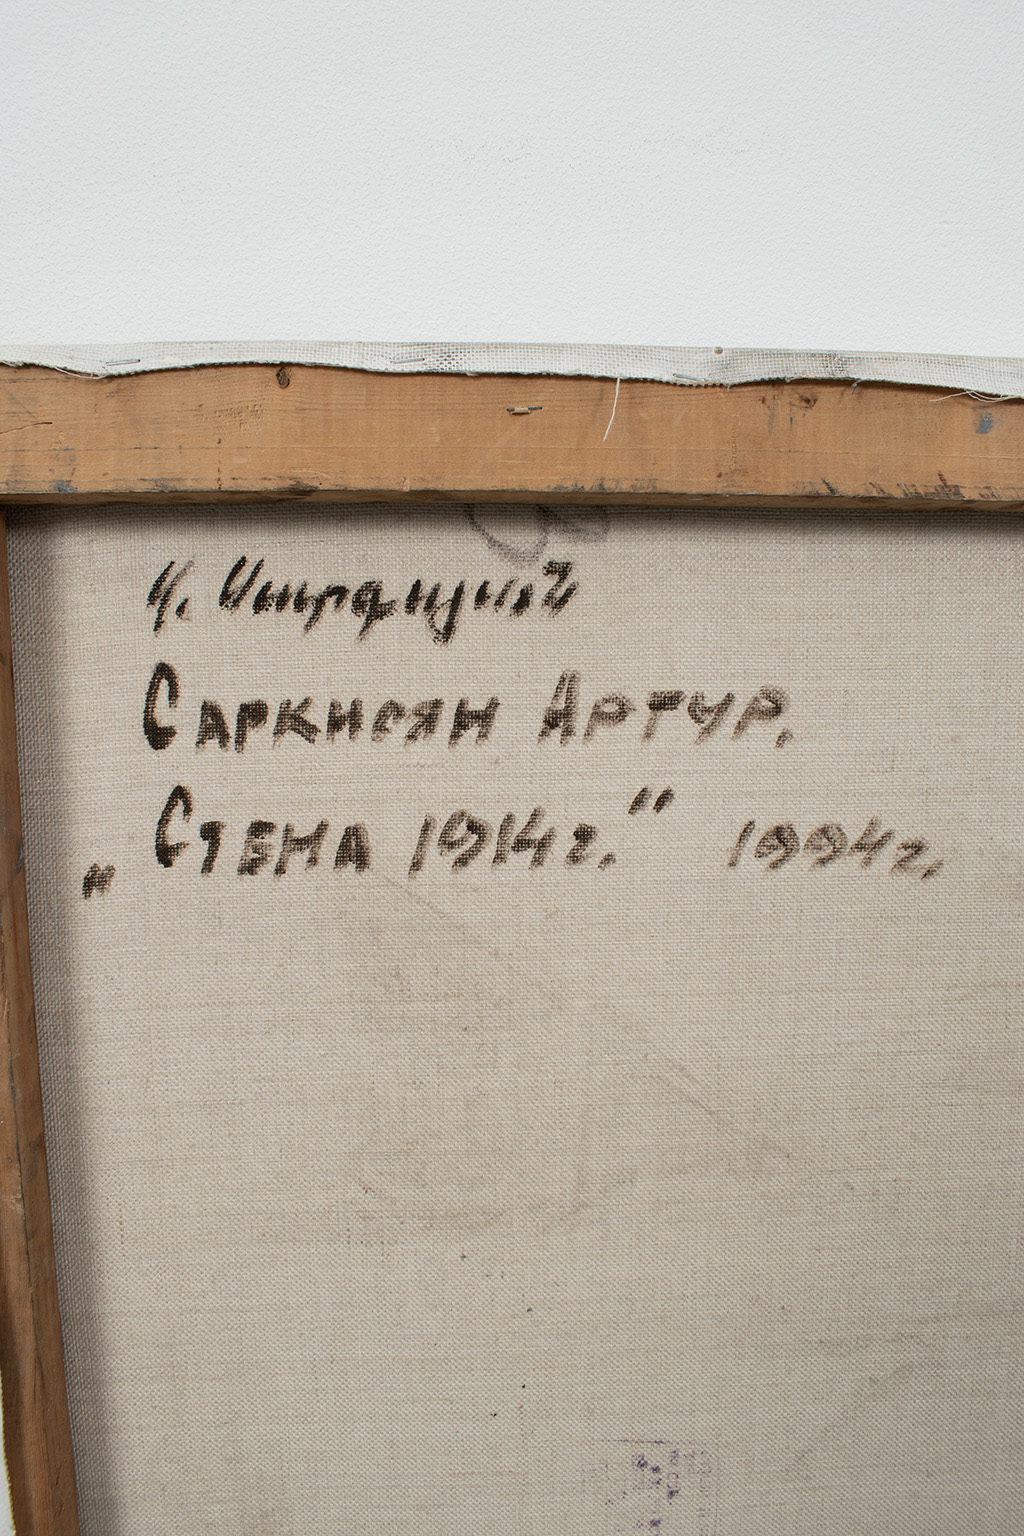 Саркисян Артур.
„Стена 1914г." 1994г.